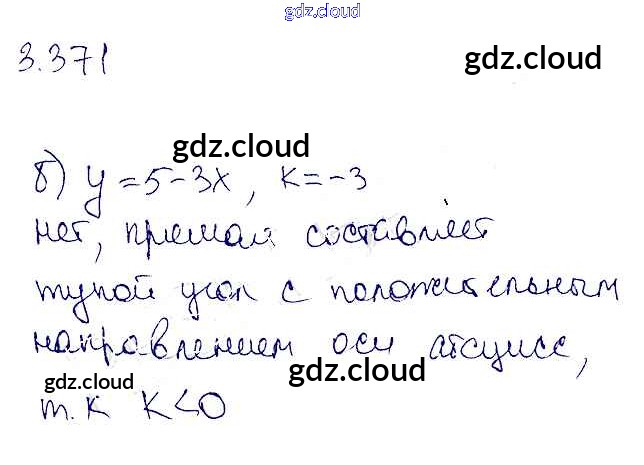 gdz.cloud
3.371
gdz.cloud
gdz.cloud
б) y = 5 - 3x, k = -3
нет, прямая составляет
тупой угол с положительным
направлением оси абсцисс,
gdz.cloud
gdz.cloud
т.к k < 0